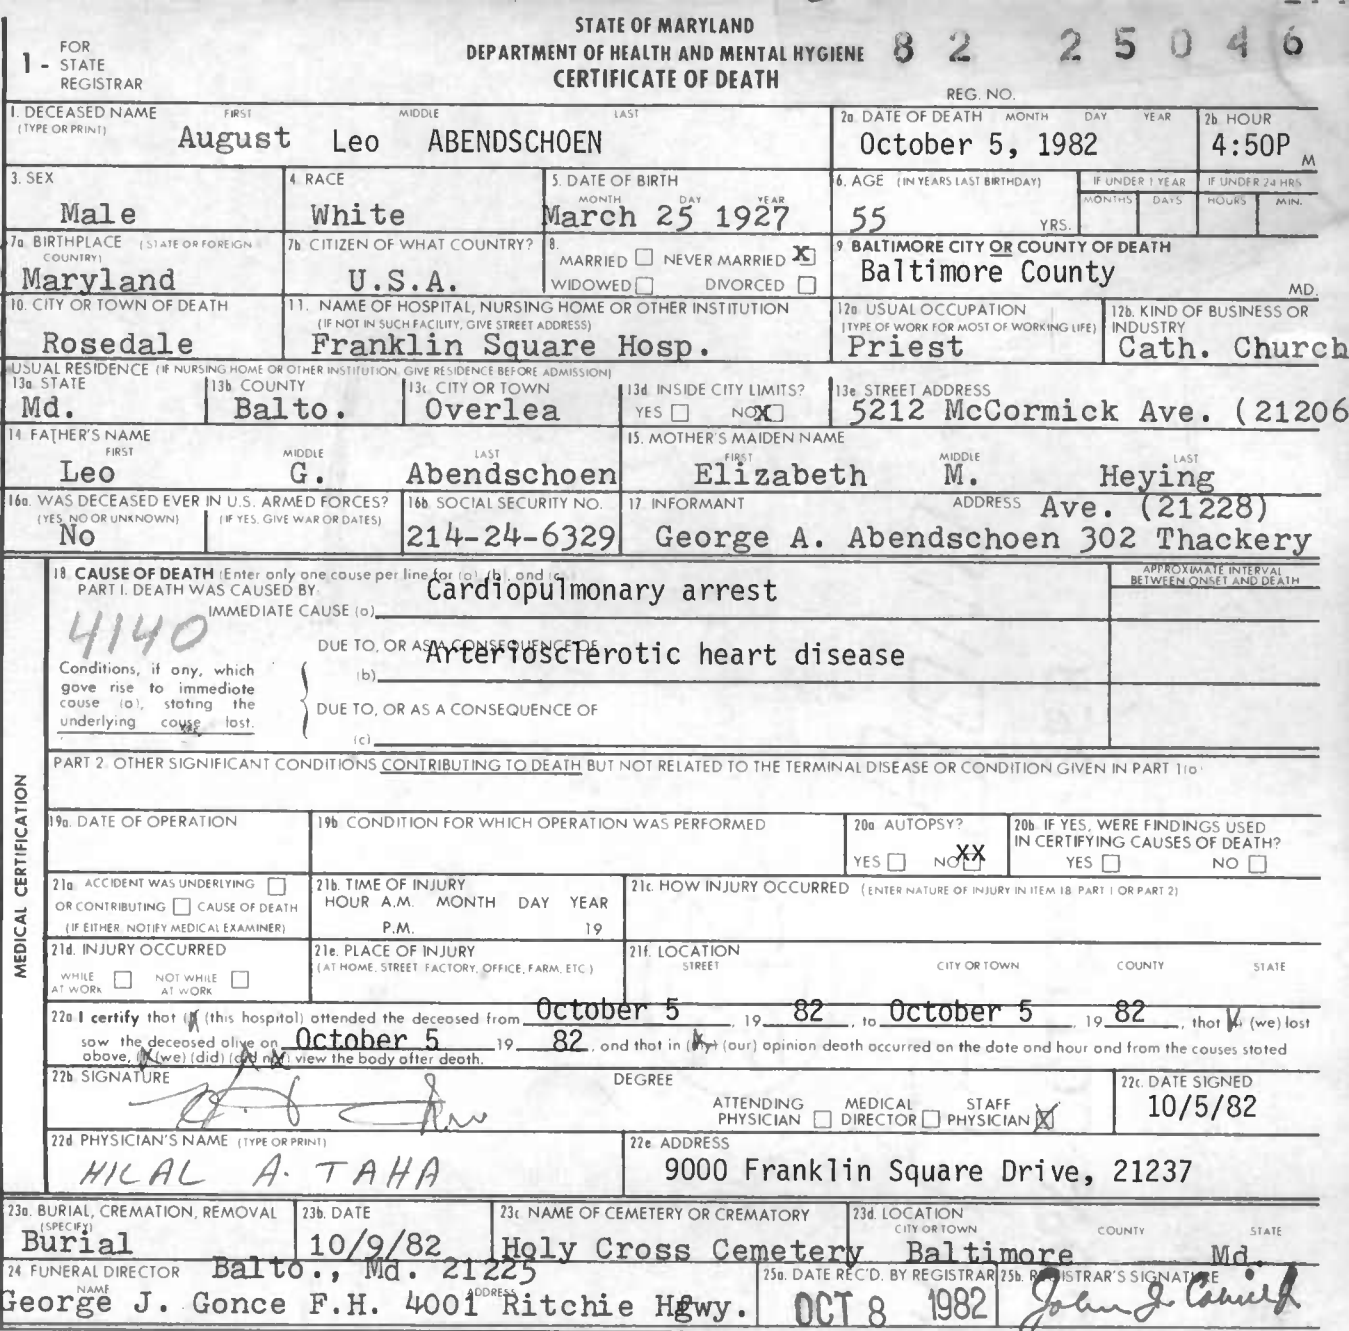 STATE OF MARYLAND
DEPARTMENT OF HEALTH AND MENTAL HYGIENE 82 25046
CERTIFICATE OF DEATH
1 - FOR STATE REGISTRAR
REG. NO.
1. DECEASED NAME (TYPE OR PRINT) FIRST MIDDLE LAST
August Leo ABENDSCHOEN
2a. DATE OF DEATH MONTH DAY YEAR
October 5, 1982
2b. HOUR
4:50P M
3. SEX
Male
4. RACE
White
5. DATE OF BIRTH
MONTH DAY YEAR
March 25 1927
6. AGE (IN YEARS LAST BIRTHDAY)
55 YRS.
IF UNDER 1 YEAR
MONTHS DAYS
IF UNDER 24 HRS
HOURS MIN.
7a. BIRTHPLACE (STATE OR FOREIGN COUNTRY)
Maryland
7b. CITIZEN OF WHAT COUNTRY?
U.S.A.
8.
MARRIED NEVER MARRIED X
WIDOWED DIVORCED
9. BALTIMORE CITY OR COUNTY OF DEATH
Baltimore County MD.
10. CITY OR TOWN OF DEATH
Rosedale
11. NAME OF HOSPITAL, NURSING HOME OR OTHER INSTITUTION
(IF NOT IN SUCH FACILITY, GIVE STREET ADDRESS)
Franklin Square Hosp.
12a. USUAL OCCUPATION
(TYPE OF WORK FOR MOST OF WORKING LIFE)
Priest
12b. KIND OF BUSINESS OR INDUSTRY
Cath. Church
USUAL RESIDENCE (IF NURSING HOME OR OTHER INSTITUTION GIVE RESIDENCE BEFORE ADMISSION)
13a. STATE
Md.
13b. COUNTY
Balto.
13c. CITY OR TOWN
Overlea
13d. INSIDE CITY LIMITS?
YES NO X
13e. STREET ADDRESS
5212 McCormick Ave. (21206
14. FATHER'S NAME
FIRST MIDDLE LAST
Leo G. Abendschoen
15. MOTHER'S MAIDEN NAME
FIRST MIDDLE LAST
Elizabeth M. Heying
16a. WAS DECEASED EVER IN U.S. ARMED FORCES?
(YES, NO OR UNKNOWN) (IF YES, GIVE WAR OR DATES)
No
16b. SOCIAL SECURITY NO.
214-24-6329
17. INFORMANT ADDRESS Ave. (21228)
George A. Abendschoen 302 Thackery
MEDICAL CERTIFICATION
18. CAUSE OF DEATH (Enter only one cause per line for (a), (b), and (c)
PART I. DEATH WAS CAUSED BY:
IMMEDIATE CAUSE (a) Cardiopulmonary arrest
APPROXIMATE INTERVAL BETWEEN ONSET AND DEATH
4140
DUE TO, OR AS A CONSEQUENCE OF
(b) Arteriosclerotic heart disease
Conditions, if any, which
gave rise to immediate
cause (a), stating the
underlying cause last.
DUE TO, OR AS A CONSEQUENCE OF
(c)
PART 2. OTHER SIGNIFICANT CONDITIONS CONTRIBUTING TO DEATH BUT NOT RELATED TO THE TERMINAL DISEASE OR CONDITION GIVEN IN PART 1(a)
19a. DATE OF OPERATION
19b. CONDITION FOR WHICH OPERATION WAS PERFORMED
20a. AUTOPSY?
YES NO XX
20b. IF YES, WERE FINDINGS USED
IN CERTIFYING CAUSES OF DEATH?
YES NO
21a. ACCIDENT WAS UNDERLYING
OR CONTRIBUTING CAUSE OF DEATH
(IF EITHER, NOTIFY MEDICAL EXAMINER)
21b. TIME OF INJURY
HOUR A.M. MONTH DAY YEAR
P.M. 19
21c. HOW INJURY OCCURRED (ENTER NATURE OF INJURY IN ITEM 18, PART 1 OR PART 2)
21d. INJURY OCCURRED
WHILE AT WORK NOT WHILE AT WORK
21e. PLACE OF INJURY
(AT HOME, STREET, FACTORY, OFFICE, FARM, ETC.)
21f. LOCATION
STREET CITY OR TOWN COUNTY STATE
22a. I certify that (I) (this hospital) attended the deceased from October 5, 19 82, to October 5, 19 82, that (I) (we) last
saw the deceased alive on October 5 19 82, and that in (my) (our) opinion death occurred on the date and hour and from the causes stated
above, (I) (we) (did) (did not) view the body after death.
22b. SIGNATURE DEGREE
ATTENDING PHYSICIAN MEDICAL DIRECTOR STAFF PHYSICIAN X
22c. DATE SIGNED
10/5/82
22d. PHYSICIAN'S NAME (TYPE OR PRINT)
HILAL A. TAHA
22e. ADDRESS
9000 Franklin Square Drive, 21237
23a. BURIAL, CREMATION, REMOVAL
(SPECIFY)
Burial
23b. DATE
10/9/82
23c. NAME OF CEMETERY OR CREMATORY
Holy Cross Cemetery
23d. LOCATION
CITY OR TOWN COUNTY STATE
Baltimore Md.
24. FUNERAL DIRECTOR Balto., Md. 21225
NAME ADDRESS
George J. Gonce F.H. 4001 Ritchie Hgwy.
25a. DATE REC'D. BY REGISTRAR
OCT 8 1982
25b. REGISTRAR'S SIGNATURE